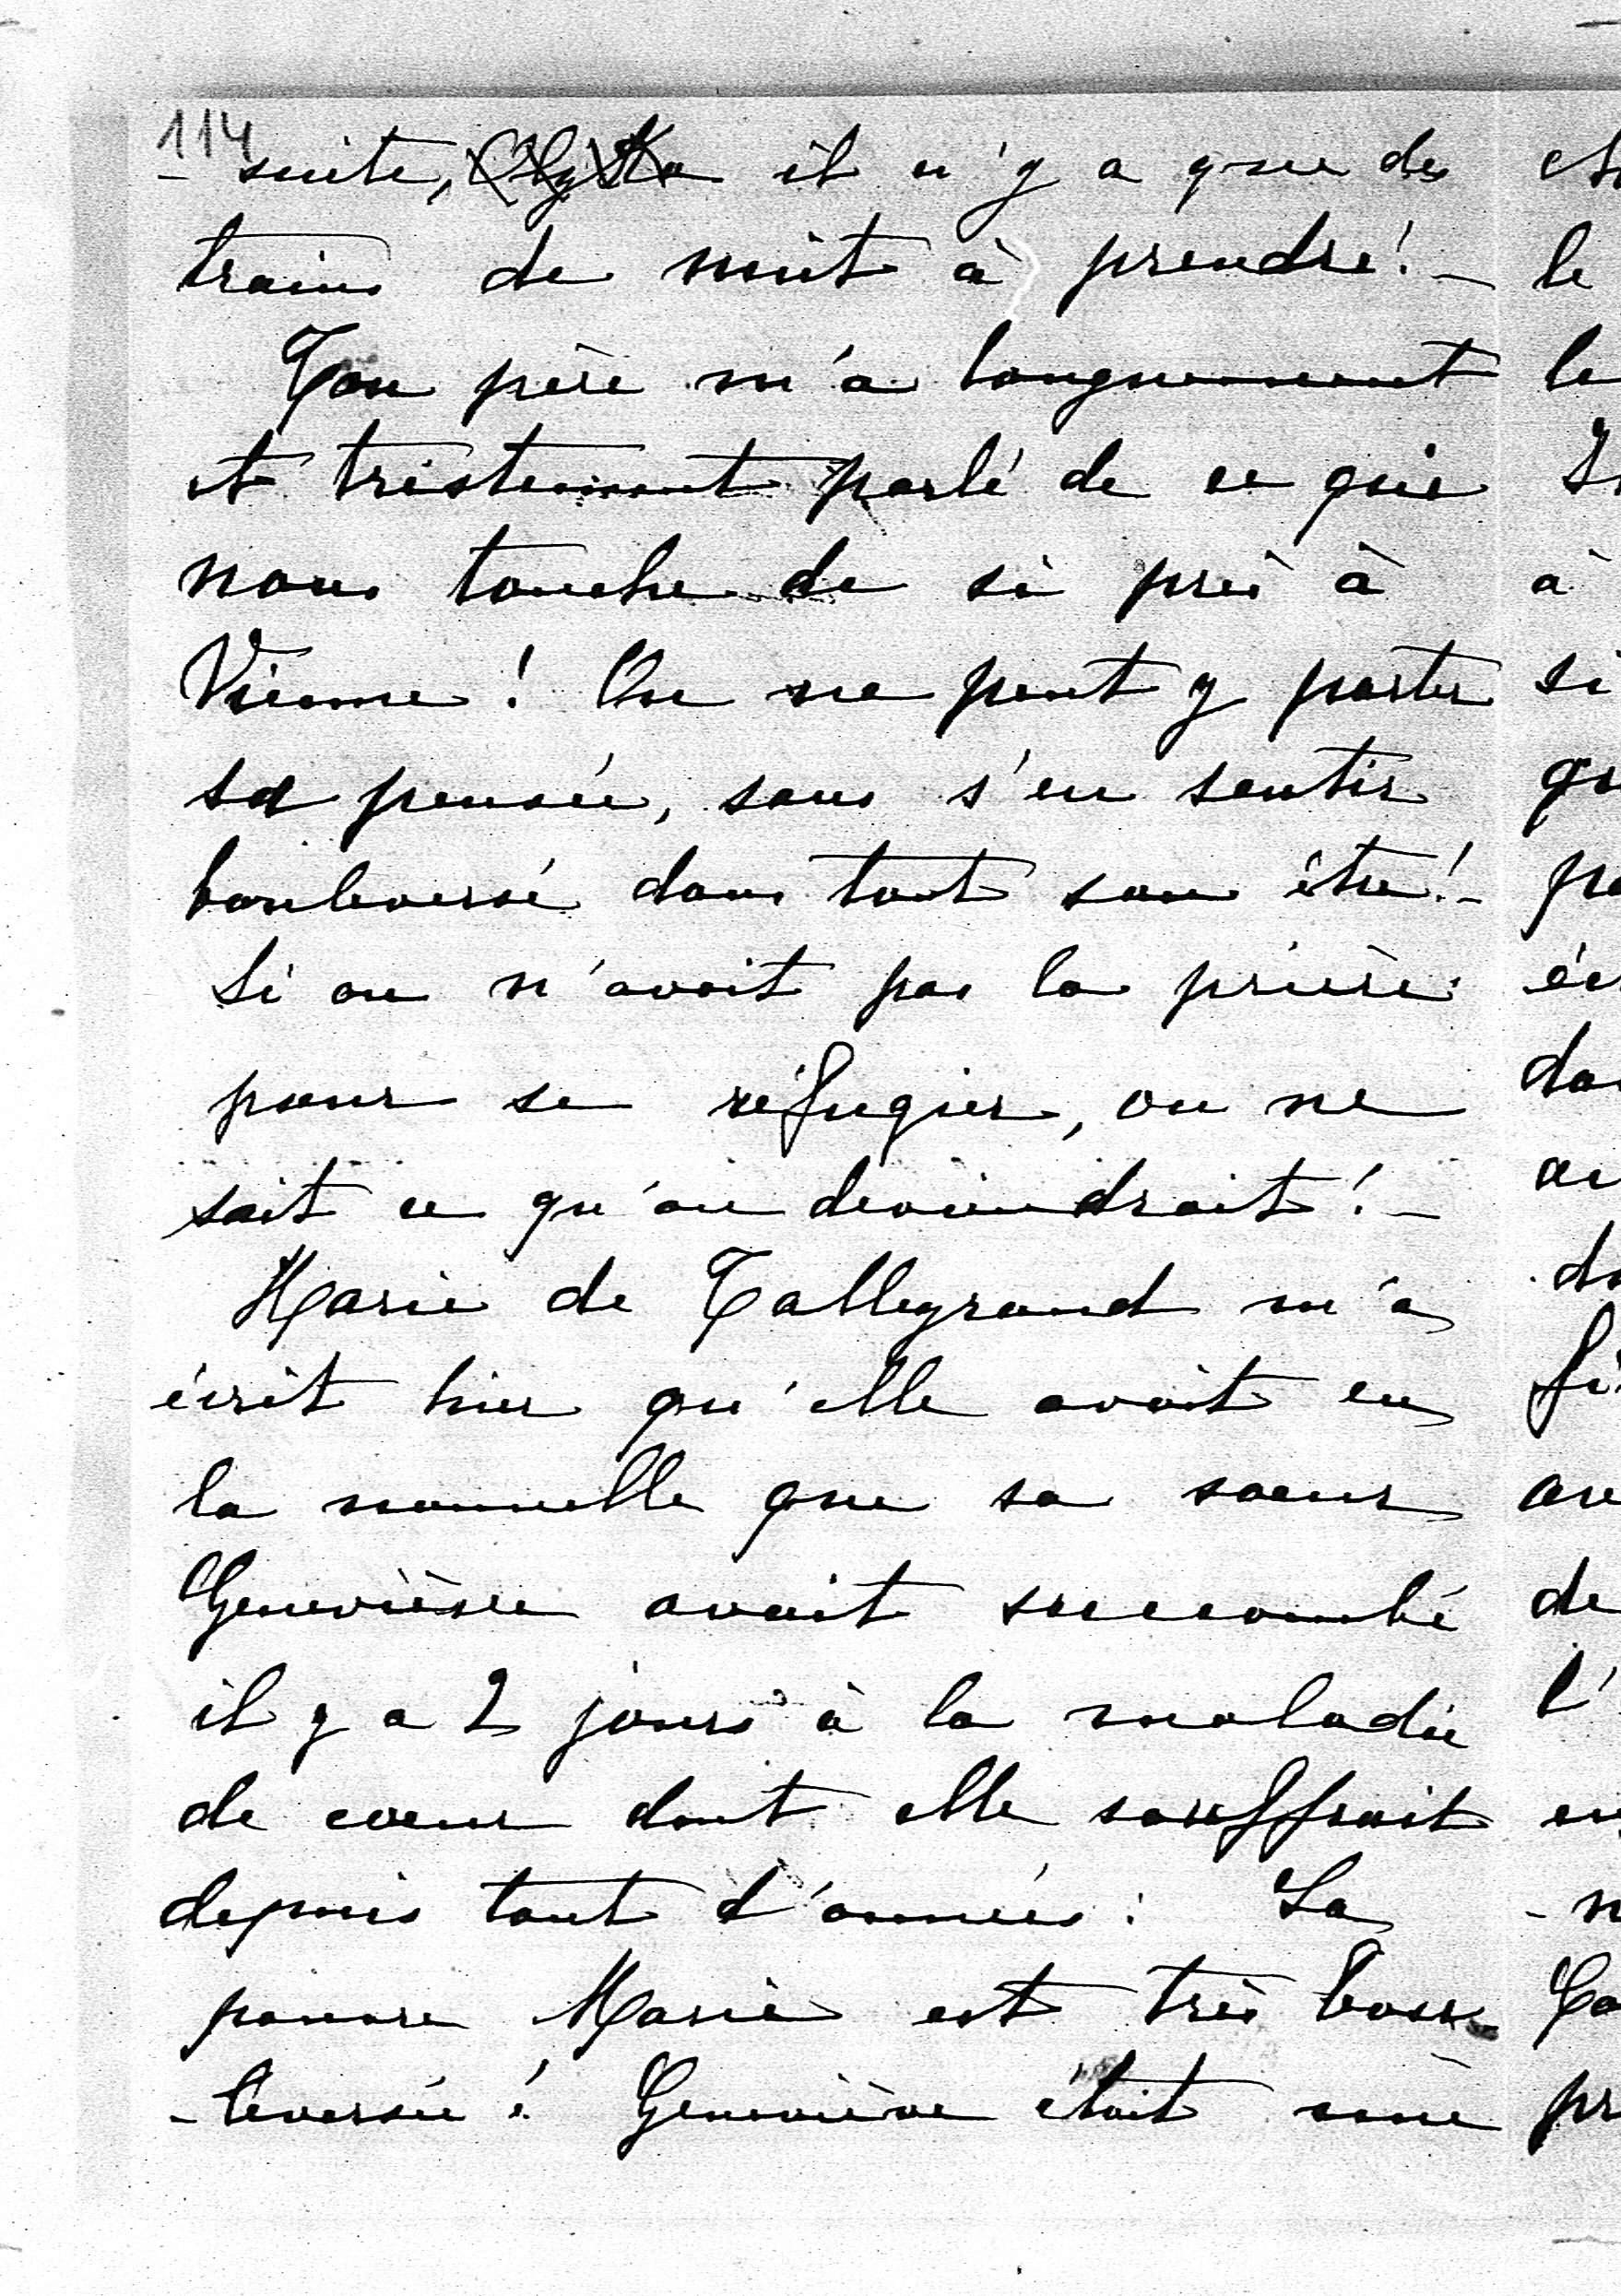 114
- suite, il n'y a que des
trains de nuit à prendre! -
Ton père m'a longuement
et tristement parlé de ce qui
nous touche de si près à
Vienne! On ne peut y porter
sa pensée, sans s'en sentir
bouleversé dans tout son être! -
Si on n'avait pas la prière
pour se réfugier, on ne
sait ce qu'on deviendrait! -
Marie de Talleyrand m'a
écrit hier qu'elle avait eu
la nouvelle que sa soeur
Geneviève avait succombé
il y a 2 jours à la maladie
de coeur dont elle souffrait
depuis tant d'années: La
pauvre Marie est très bou-
-leversée! Geneviève était une